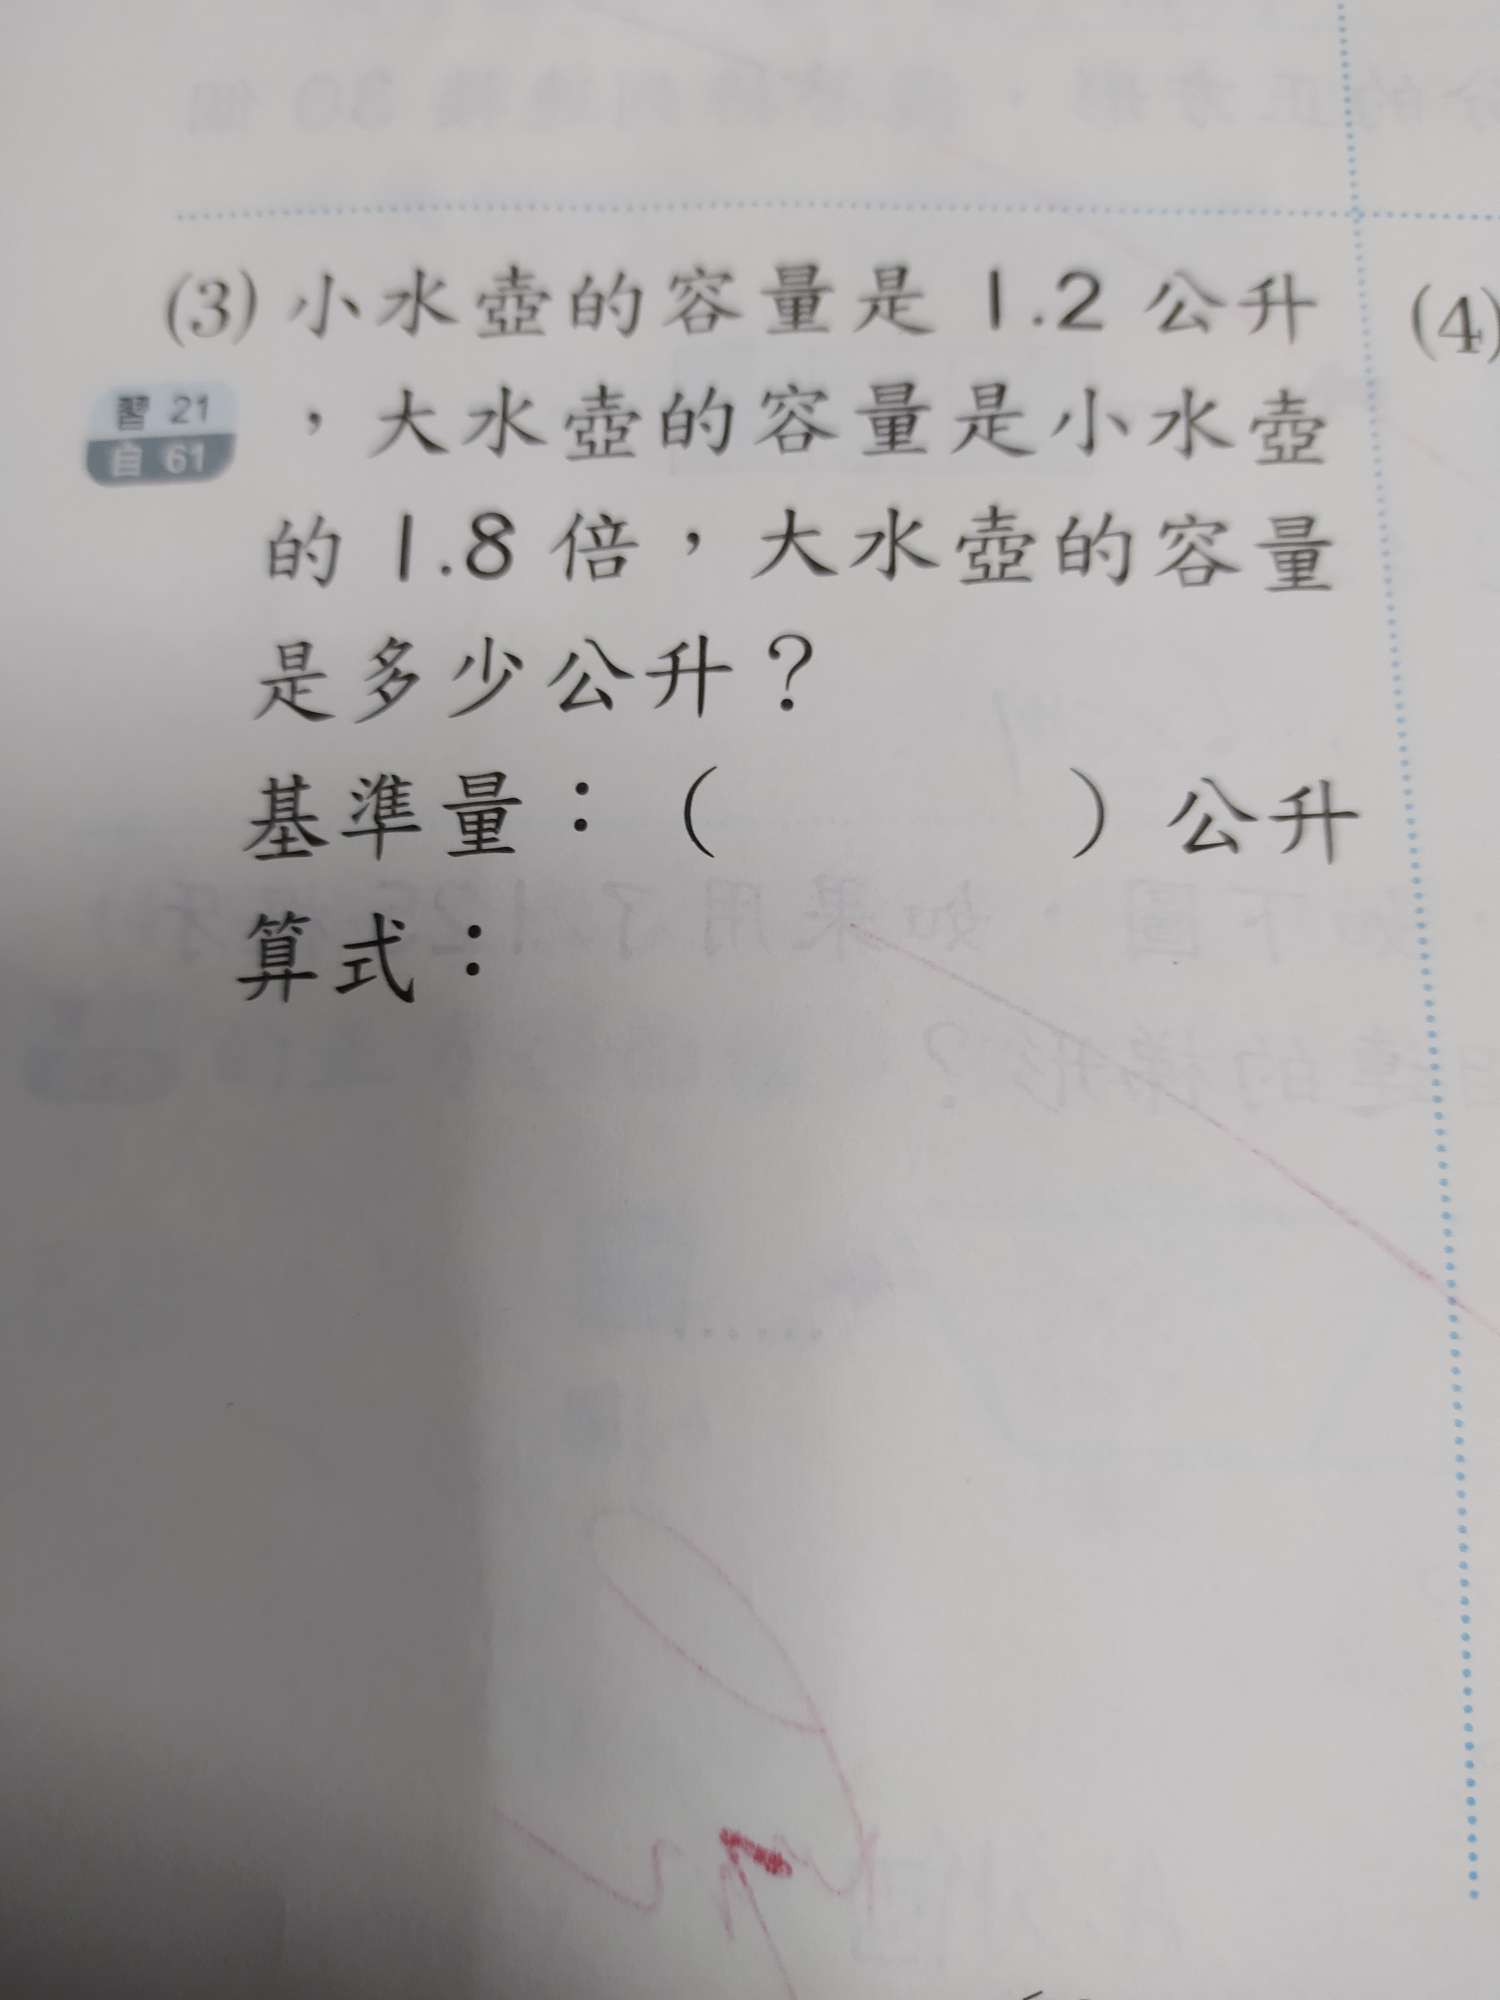 (3) 小水壺的容量是 1.2 公升
(4)
習 21
自 61
，大水壺的容量是小水壺
的 1.8 倍，大水壺的容量
是多少公升？
基準量：（ ）公升
算式：